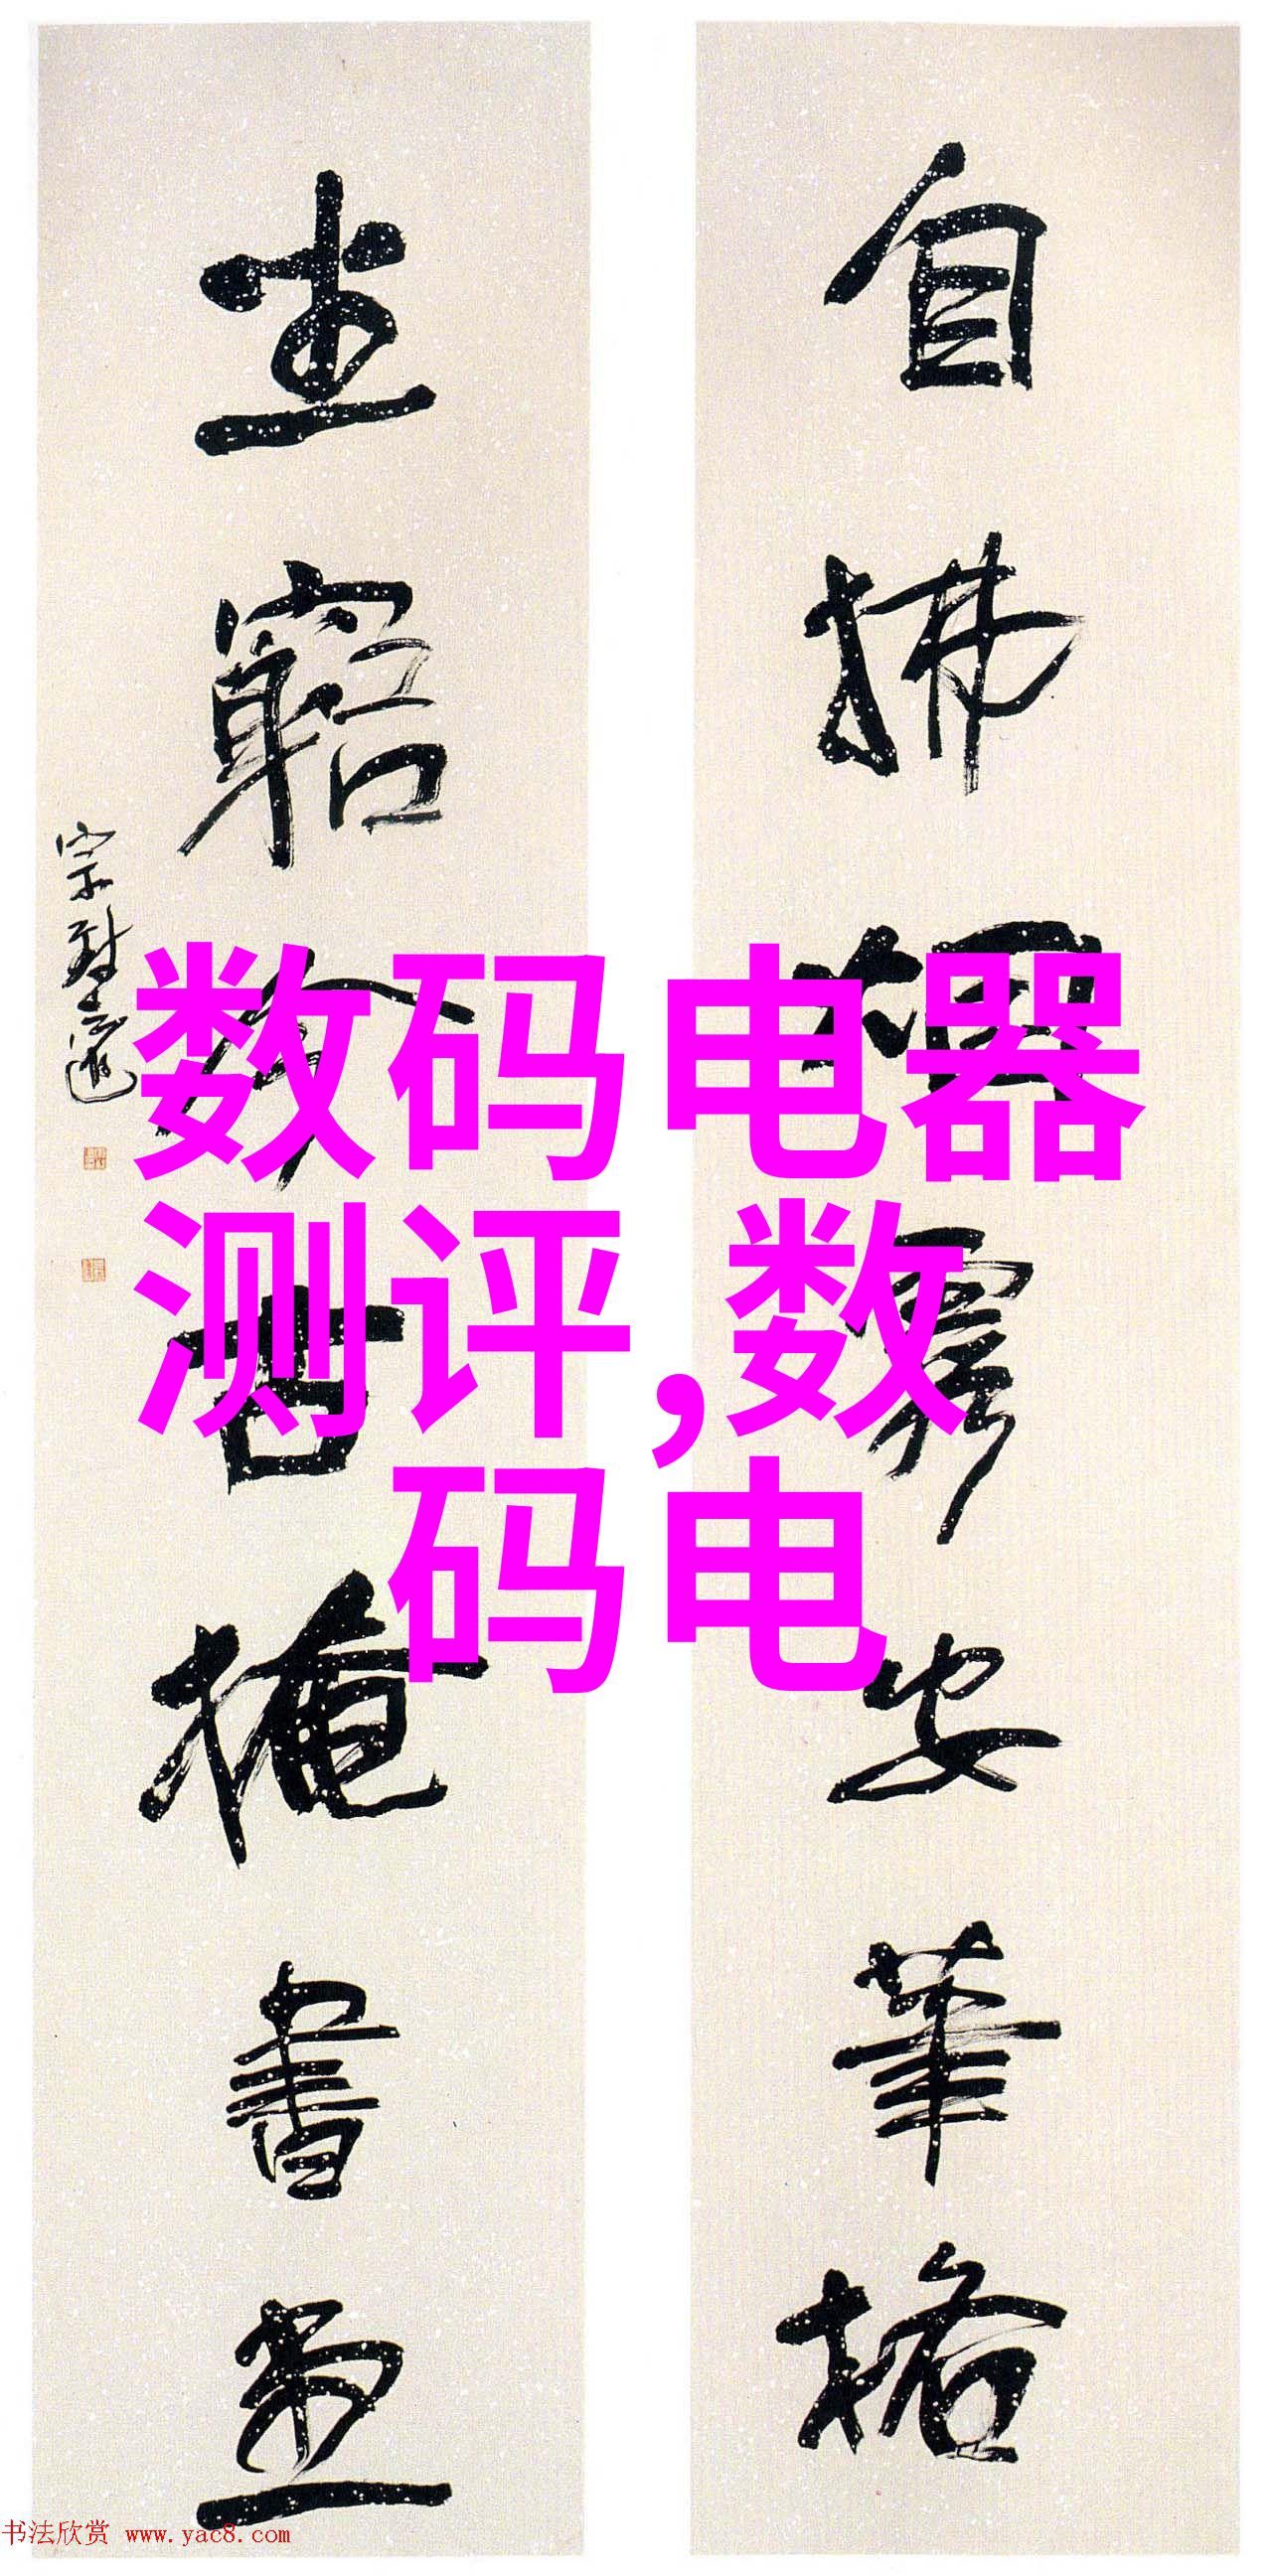 自拂烟霞安筆格
坐窮今古掩書堂
数码电器
测评,数
码电
书法欣赏 www.yac8.com